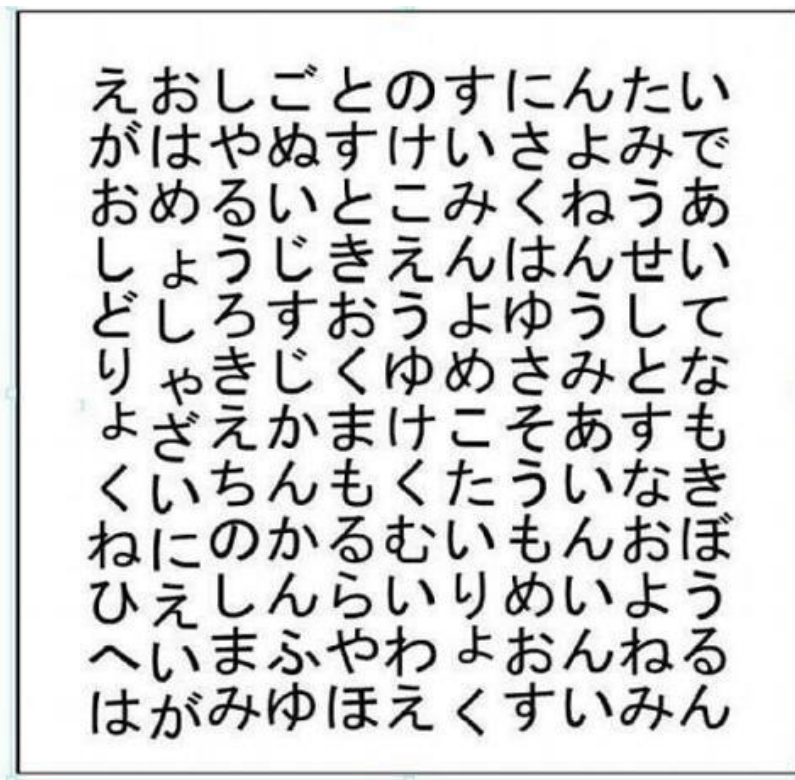 えおしごとのすにんたい
がはやぬすけいさよみで
おめるいとこみくねうあ
しょうじきえんはんせい
どしろすおうよゆうして
りゃきじくゆめさみとな
よざえかまけこそあすも
くいちんもくたういなき
ねにのかるむいもんおぼ
ひえしんらいりめいよう
へいまふやわよおんねる
はがみゆほえくすいみん